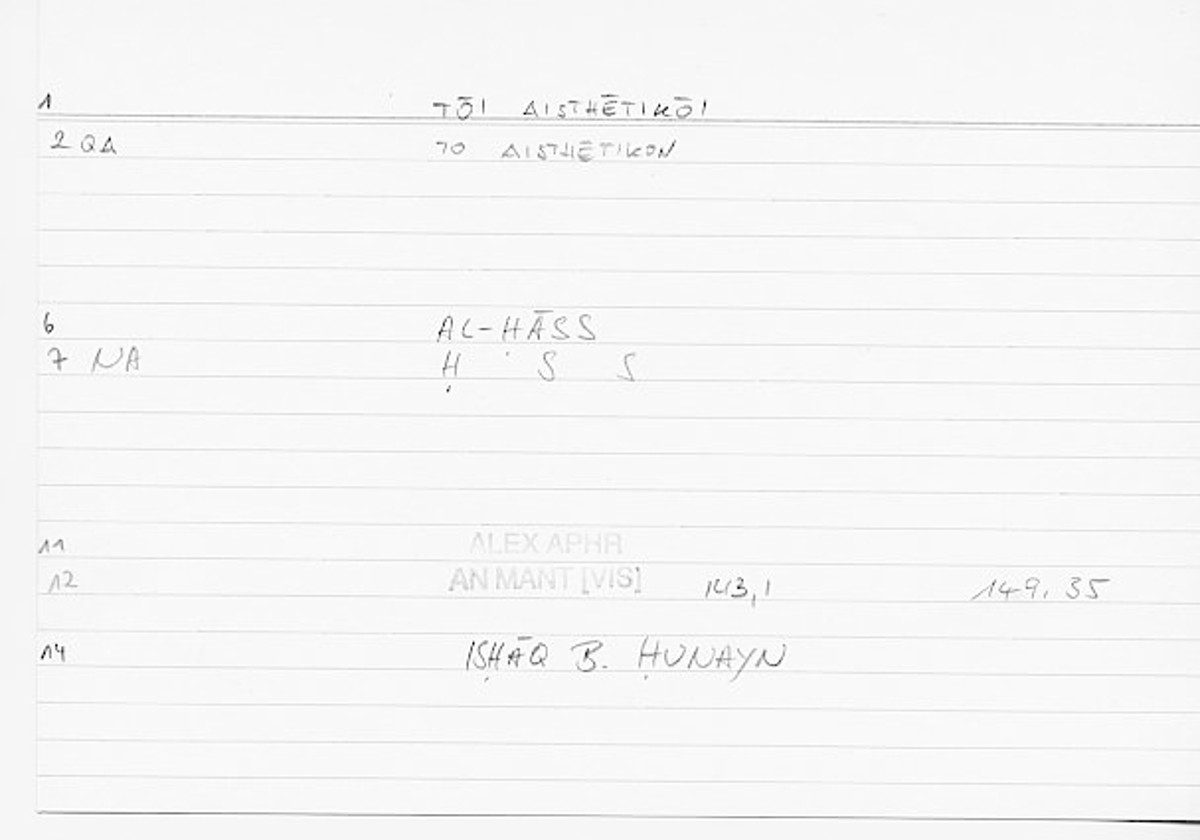 1 TŌI AISTHĒTIKŌI
2 QA TO AISTHĒTIKON
6 AL-ḤĀSS
7 NA Ḥ S S
11 ALEX APHR
12 AN MANT [VIS] 143,1 149,35
14 ISḤĀQ B. ḤUNAYN